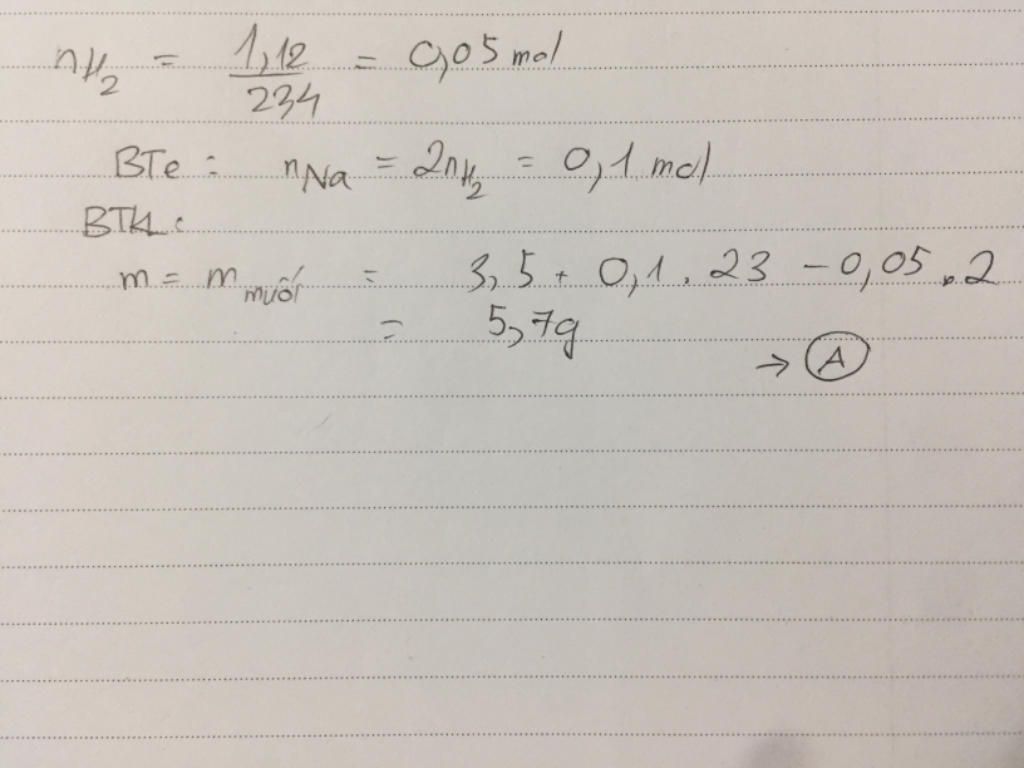 nH2 = 1,12/234 = 0,05 mol
BTe : nNa = 2nH2 = 0,1 mol
BTKL :
m = m muối = 3,5 + 0,1 . 23 - 0,05 . 2
= 5,7g
→ A